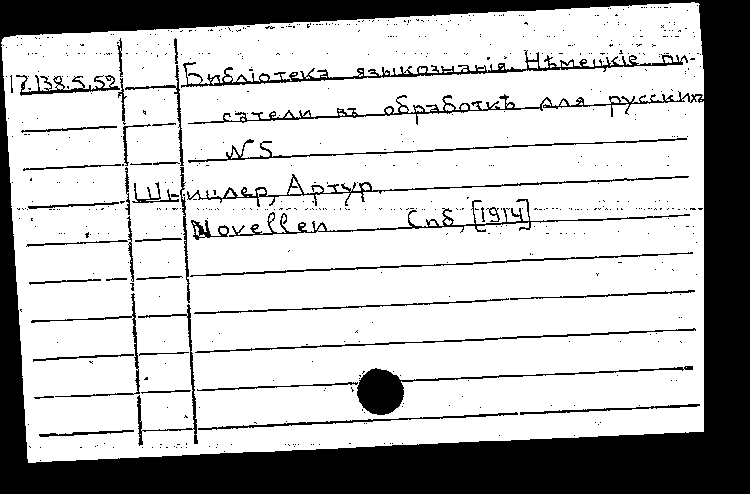 17.138.5.52 Библіотека языкознанія. Нѣмецкіе пи-
сатели въ обработкѣ для русскихъ
N 5
Шницлер, Артур.
Novellen Спб, [1914]